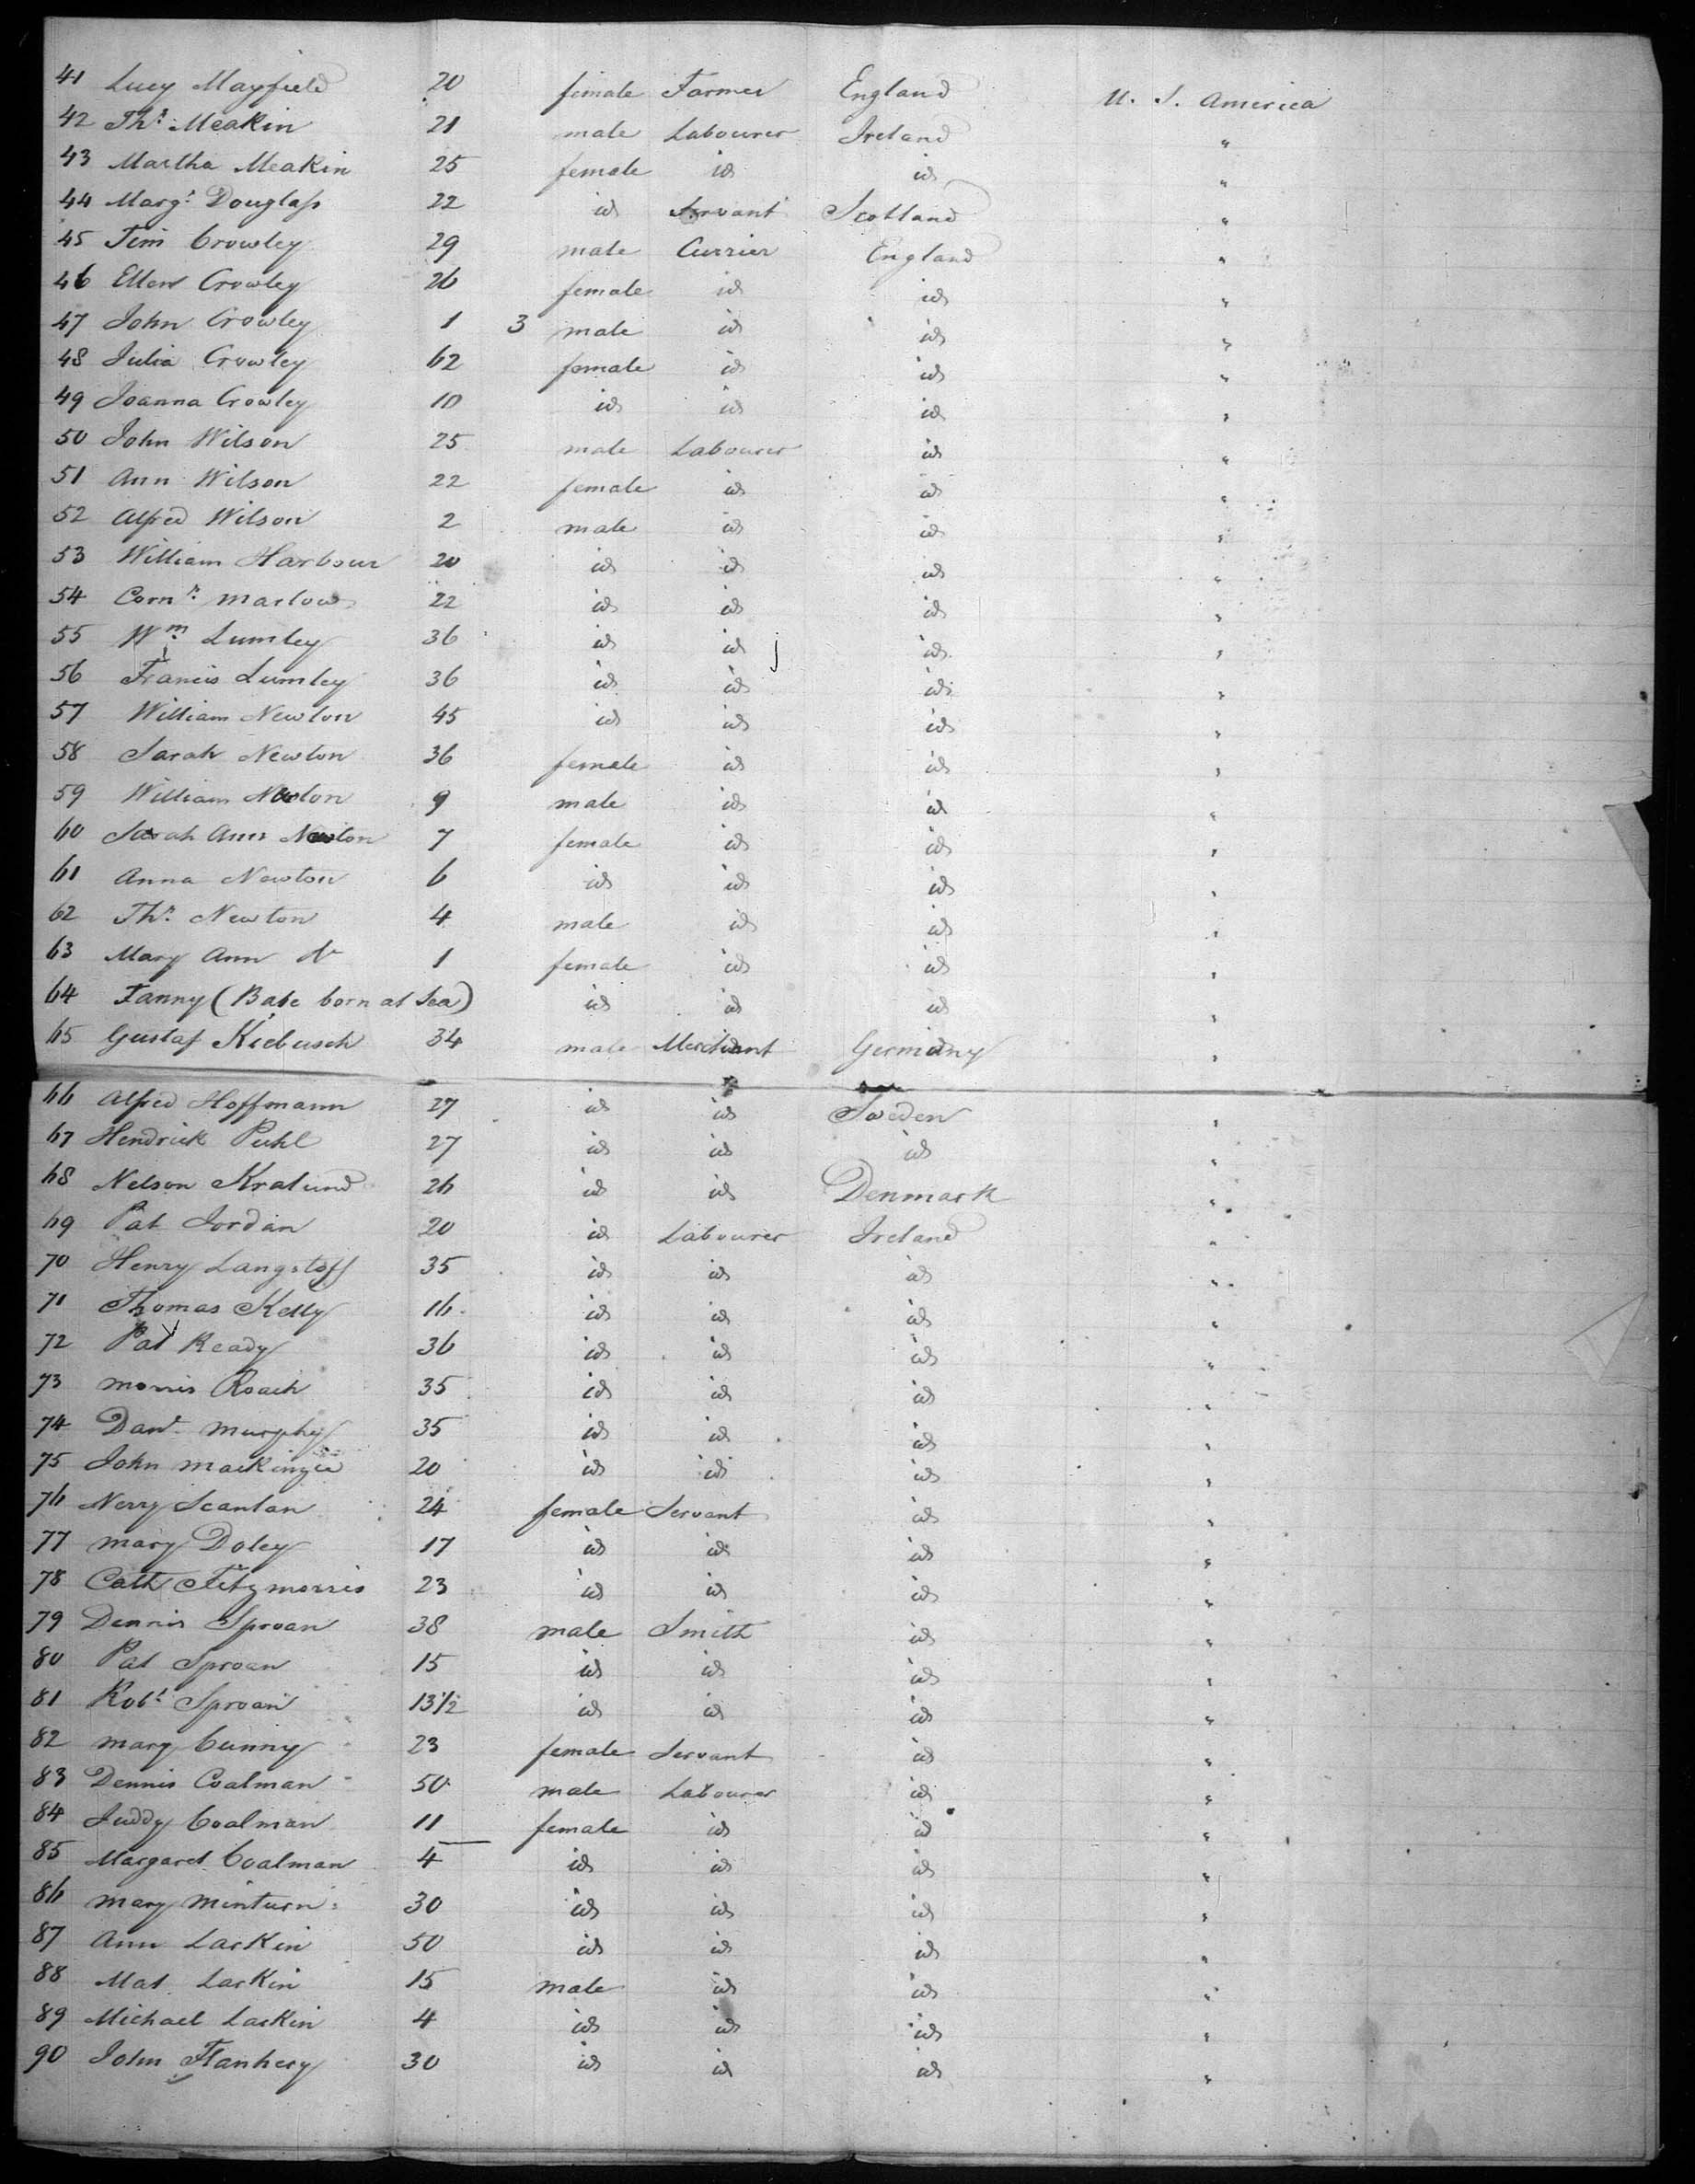 41 Lucy Mayfield 20 female Farmer England U. S. America
42 Ths. Meakin 21 male Labourer Ireland "
43 Martha Meakin 25 female id id "
44 Margt. Douglass 22 id Servant Scotland "
45 Tim Crowley 29 male Currier England "
46 Ellen Crowley 26 female id id "
47 John Crowley 1 3 male id id "
48 Julia Crowley 62 female id id "
49 Joanna Crowley 10 id id id "
50 John Wilson 25 male Labourer id "
51 Ann Wilson 22 female id id "
52 Alfred Wilson 2 male id id "
53 William Harbour 20 id id id "
54 Corns. Marlow 22 id id id "
55 Wm. Lumley 36 id id id "
56 Francis Lumley 36 id id id "
57 William Newton 45 id id id "
58 Sarah Newton 36 female id id "
59 William Newton 9 male id id "
60 Sarah Ann Newton 7 female id id "
61 Anna Newton 6 id id id "
62 Ths. Newton 4 male id id "
63 Mary Ann do 1 female id id "
64 Fanny (Babe born at Sea) id id id "
65 Gustaf Kiebusch 34 male Merchant Germany "
66 Alfred Hoffmann 27 id id Sweden "
67 Hendrick Puhl 27 id id id "
68 Nelson Kralund 26 id id Denmark "
69 Pat Jordan 20 id Labourer Ireland "
70 Henry Langstaff 35 id id id "
71 Thomas Kelly 16 id id id "
72 Pat Ready 36 id id id "
73 Morris Roach 35 id id id "
74 Danl. Murphy 35 id id id "
75 John Mackinzie 20 id id id "
76 Nerry Scanlan 24 female Servant id "
77 Mary Doley 17 id id id "
78 Cath Fitzmorris 23 id id id "
79 Dennis Sproan 38 male Smith id "
80 Pat Sproan 15 id id id "
81 Robt. Sproan 13 1/2 id id id "
82 Mary Cunny 23 female Servant id "
83 Dennis Coalman 50 male Labourer id "
84 Juddy Coalman 11 female id id "
85 Margaret Coalman 4 id id id "
86 Mary Minturn 30 id id id "
87 Ann Larkin 50 id id id "
88 Mat Larkin 15 male id id "
89 Michael Larkin 4 id id id "
90 John Flanhery 30 id id id "